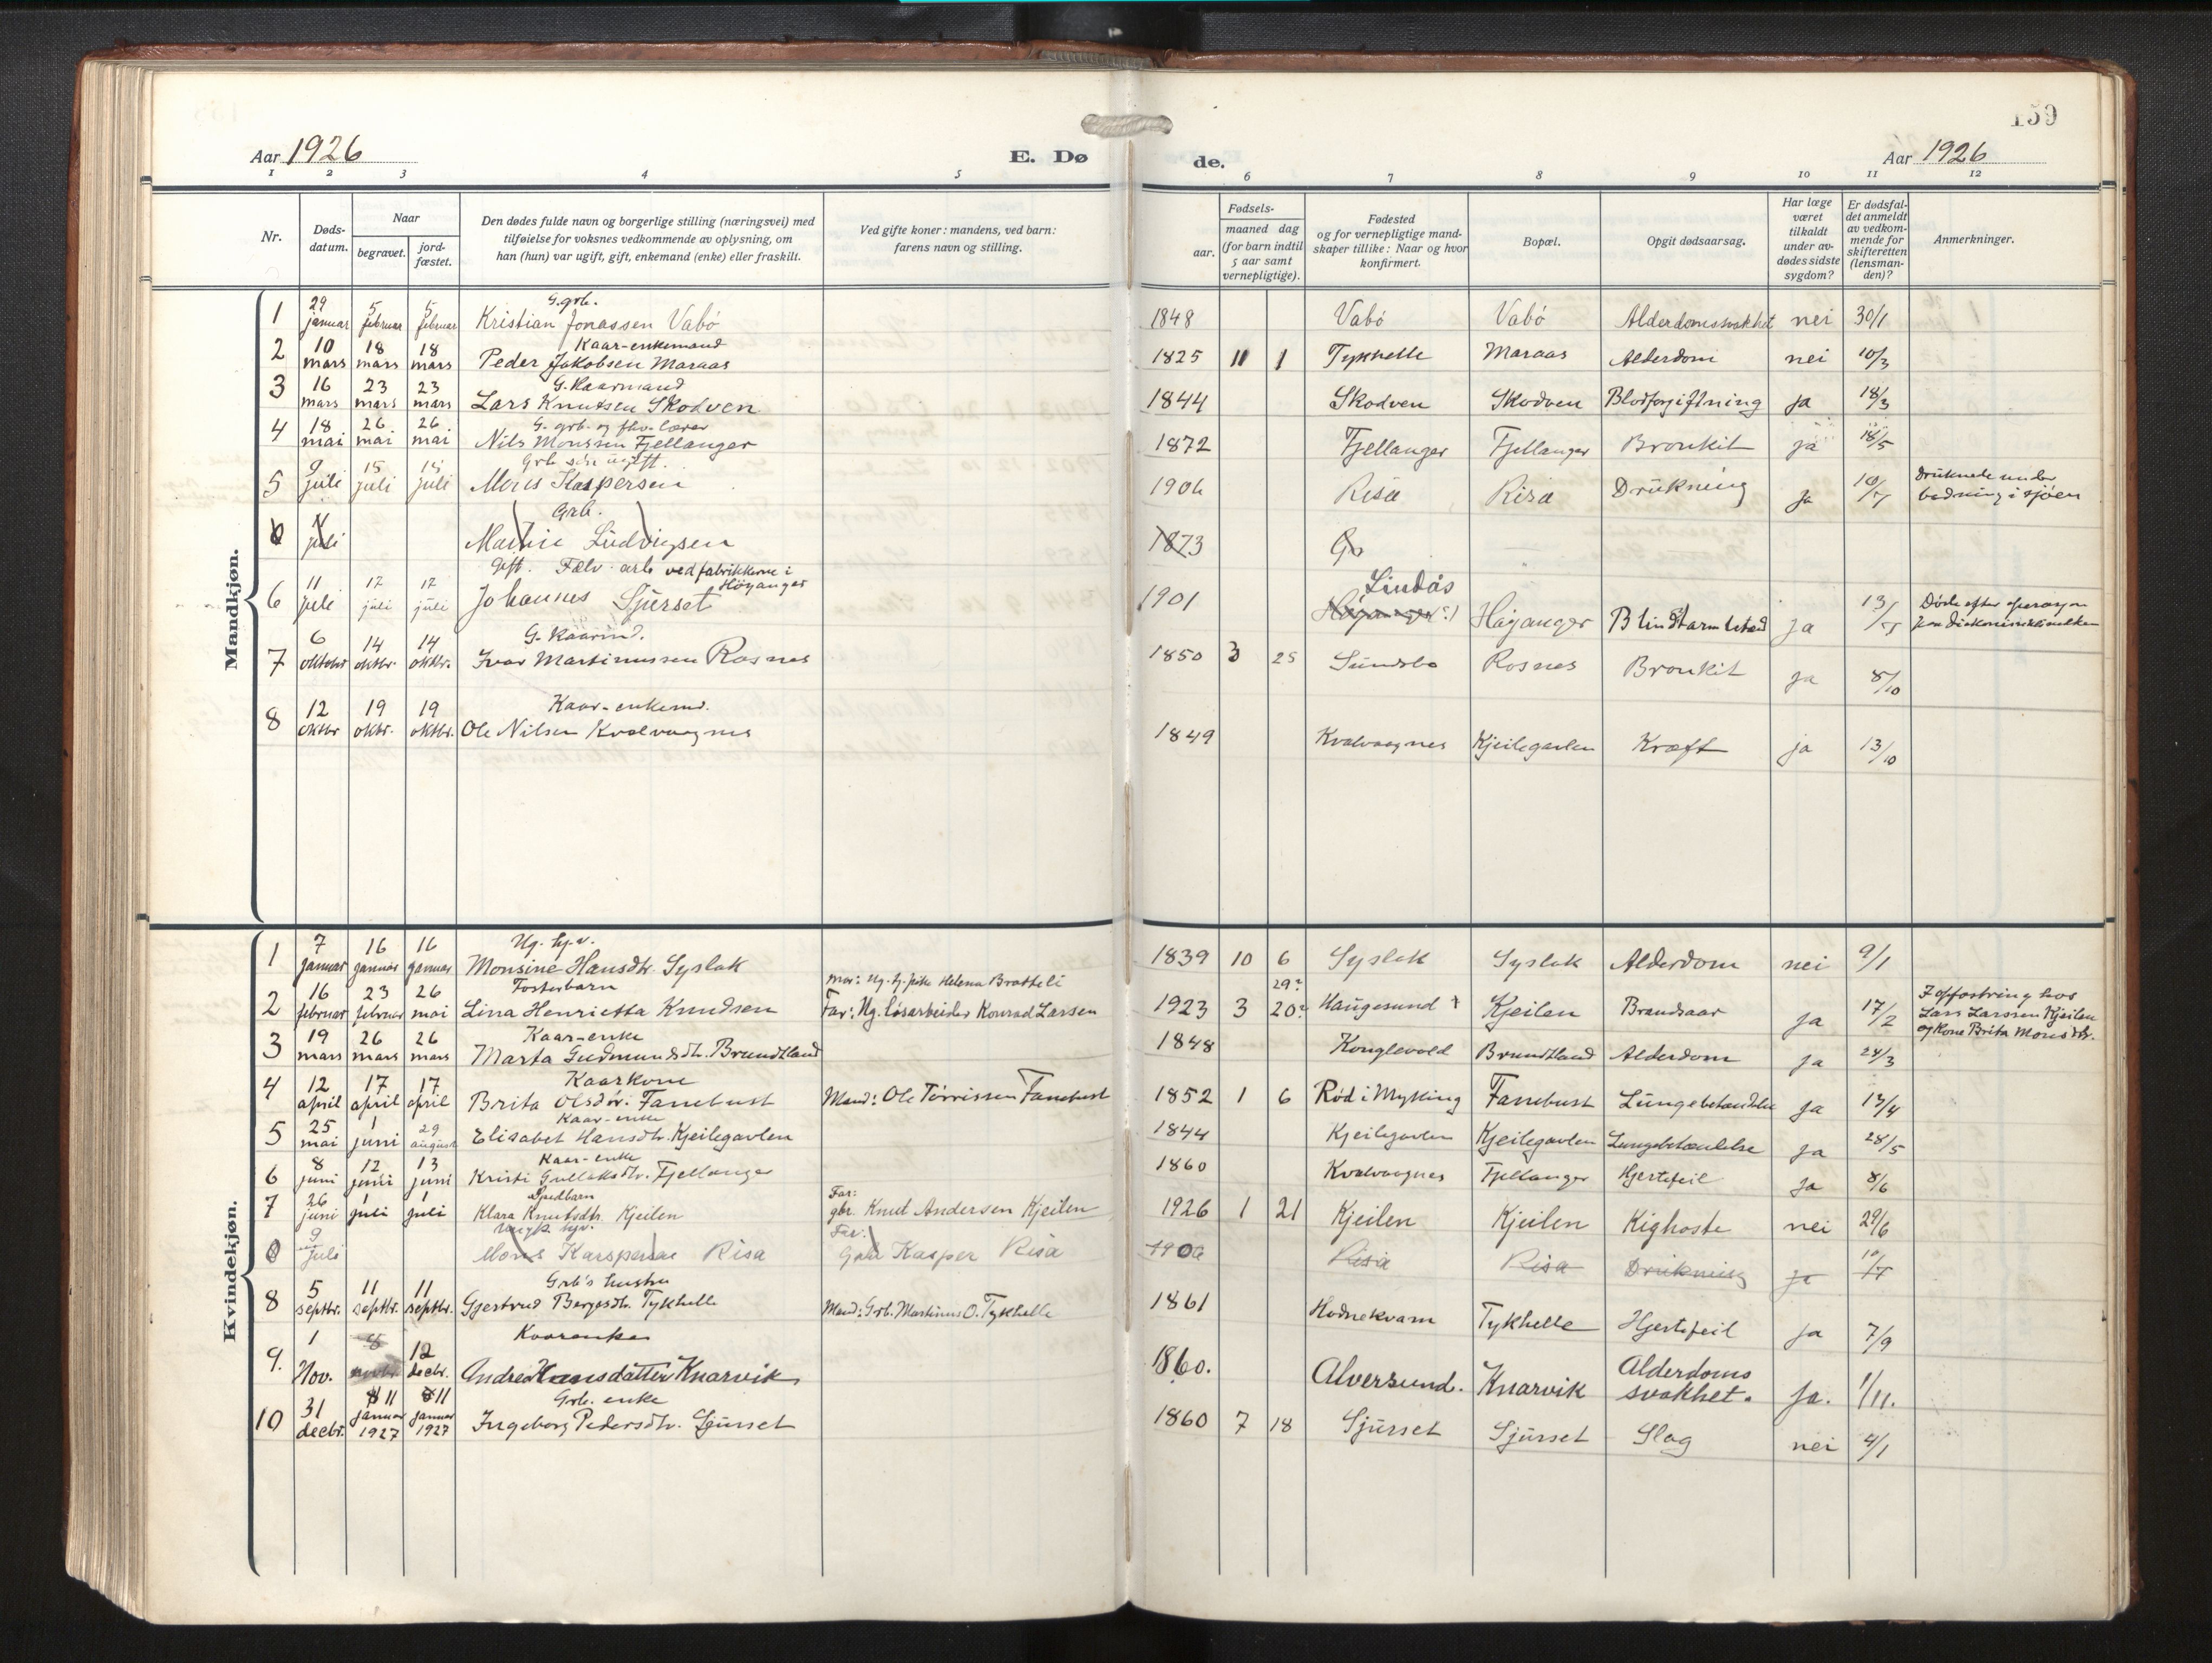 159
Aar 1926
E. Dø
de.
Aar 1926
1 2 3 4 5 6 7 8 9 10 11 12
Nr.
Døds-
datum.
Naar
begravet.
jord-
fæstet.
Den dødes fulde navn og borgerlige stilling (næringsvei) med
tilføielse for voksnes vedkommende av oplysning, om
han (hun) var ugift, gift, enkemand (enke) eller fraskilt.
Ved gifte koner: mandens, ved barn:
farens navn og stilling.
Fødsels-
aar.
maaned dag
(for barn indtil
5 aar samt
vernepligtige).
Fødested
og for vernepligtige mand-
skaper tillike: Naar og hvor
konfirmert.
Bopæl.
Opgit dødsaarsag.
Har læge
været
tilkaldt
under av-
dødes sidste
sygdom?
Er dødsfal-
det anmeldt
av vedkom-
mende for
skifteretten
(lensman-
den)?
Anmerkninger.
Mandkjøn.
29 5 5 G. grb.
1 januar februar februar Kristian Jonassen Vabö 1848 Vabö Vabö Alderdomssvakhet nei 30/1
10 18 18 Kaar-enkemand
2 mars mars mars Peder Jakobsen Maraas 1825 11 1 Tykhelle Maraas Alderdom nei 10/3
16 23 23 G. Kaarmand
3 mars mars mars Lars Knutsen Skodven 1844 Skodven Skodven Blodforgiftning ja 18/3
18 26 26 G. grb. og fhv. lærer
4 mai mai mai Nils Monssen Fjellanger 1872 Fjellanger Fjellanger Bronkit ja 18/5
9 15 15 Grb. sön ugift.
5 juli juli juli Mons Kaspersen 1906 Risa Risa Drukning ja 10/7 Druknede under
badning i sjöen
Grb.
6 juli Martin Ludvigsen 1873
Gift. Fælv. arb. ved fabrikkerne i
Höyanger
11 17 17
6 juli juli juli Johannes Sjurset 1901 Lindås Höyanger Blindtarmbetænd ja 13/7 Döde efter operasjon
paa diakonisseklinikken
6 14 14 G. Kaarmd.
7 oktober oktbr. oktbr. Ivar Martinussen Rosnes 1850 3 25 Sundsbö Rosnes Bronkit ja 8/10
12 19 19 Kaar-enkemd.
8 oktbr oktbr. oktbr. Ole Nilsen Kvalvaagnes 1849 Kvalvaagnes Kjeilegavlen Kræft ja 13/10
Kvindekjøn.
7 16 16 Ug. hj. v.
1 januar januar januar Monsine Hansdtr. Syslak 1839 10 6 Syslak Syslak Alderdom nei 9/1
16 23 26 Fosterbarn Mor: Ug. hj. pike Helena Bratteli 29?
2 februar februar mai Lina Henrietta Knudsen Far: Ug. løsarbeider Konrad Larsen 1923 3 20? Haugesund Kjeilen Brandsaar ja 17/2 I opfostring hos
Lars Larssen Kjeilen
og kone Brita Monsdtr.
19 26 26 Kaar-enke
3 mars mars mars Marta Gudmundsdtr. Brundtland 1848 Konglevold Brundtland Alderdom ja 24/3
12 17 17 Kaarkone
4 april april april Brita Olsdtr. Fanebust Mand: Ole Tørrissen Fanebust 1852 1 6 Rød i Myking Fanebust Lungebetændelse ja 13/4
25 1 29 Kaar-enke
5 mai juni august Elisabet Hansdtr. Kjeilegavlen 1844 Kjeilegavlen Kjeilegavlen Lungebetændelse ja 28/5
8 12 13 Kaar-enke
6 juni juni juni Kristi Gullaksdtr. Fjellanger 1860 Kvalvaagnes Fjellanger Hjertefeil ja 8/6
26 1 1 Spedbarn Far:
7 juni juli juli Klara Knutsdtr. Kjeilen gbr. Knut Andersen Kjeilen 1926 1 21 Kjeilen Kjeilen Kighoste nei 29/6
9 Far:
juli Mons Karspersae Risa Kasper Risa 1906 Risa Risa Drukning ja 10/7
5 11 11 Grb's hustru
8 septbr. septbr. septbr. Gjertrud Bergesdtr. Tykhelle Mand: Grb. Martinus O. Tykhelle 1861 Hodnekvam Tykhelle Hjertefeil ja 7/9
1 8 12 Kaarenke
9. Nov. novbr. decbr. Andrea Hansdatter Knarvik 1860. Alversund. Knarvik Alderdoms
svakhet. Ja. 1/11.
31 11 11 Grb. enke
10 decbr. januar januar Ingeborg Pedersdtr. Sjurset 1860 7 18 Sjurset Sjurset Slag nei 4/1
1927 1927